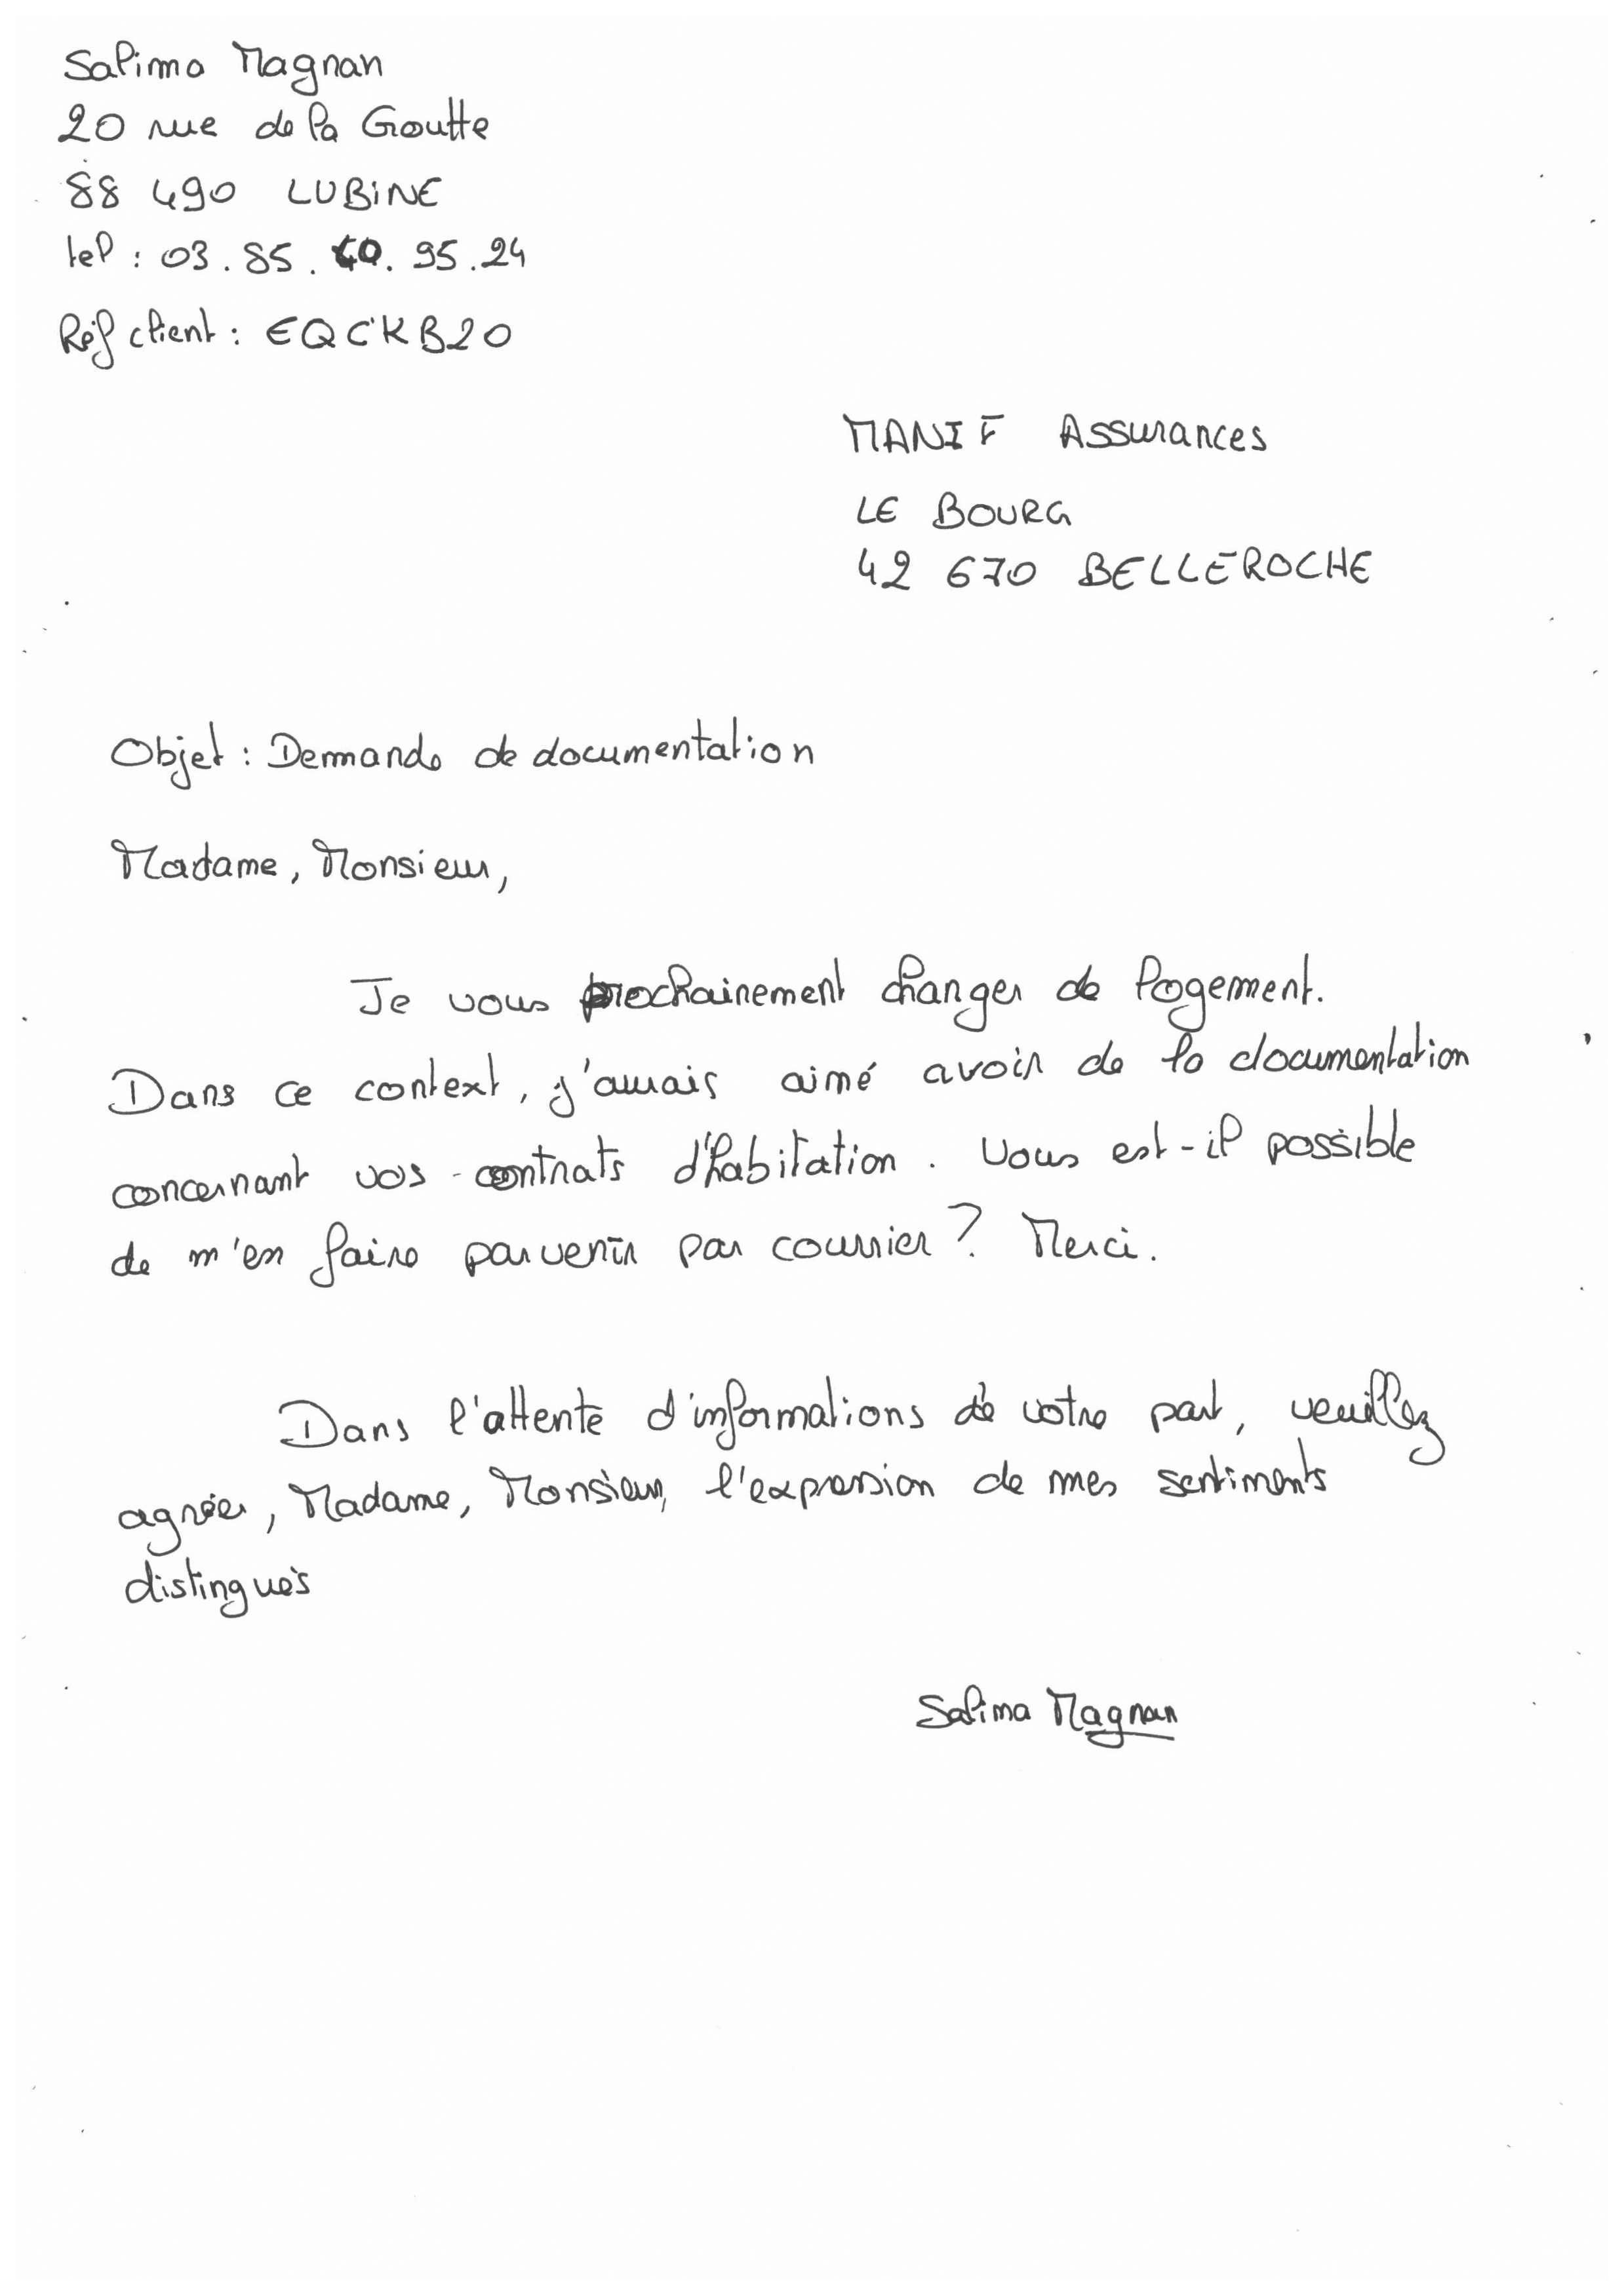 Salima Magnan
20 rue de la Goutte
88 490 LUBINE
tel : 03.85.40.95.24
Réf client : EQCKB20
MANIF Assurances
LE BOURG
42 670 BELLEROCHE
Objet : Demande de documentation
Madame, Monsieur,
Je vous prochainement changer de logement.
Dans ce context, j'aurais aimé avoir de la documentation
concernant vos contrats d'habitation. Vous est-il possible
de m'en faire parvenir par courrier ? Merci.
Dans l'attente d'informations de votre part, veuillez
agréer, Madame, Monsieur, l'expression de mes sentiments
distingués
Salima Magnan